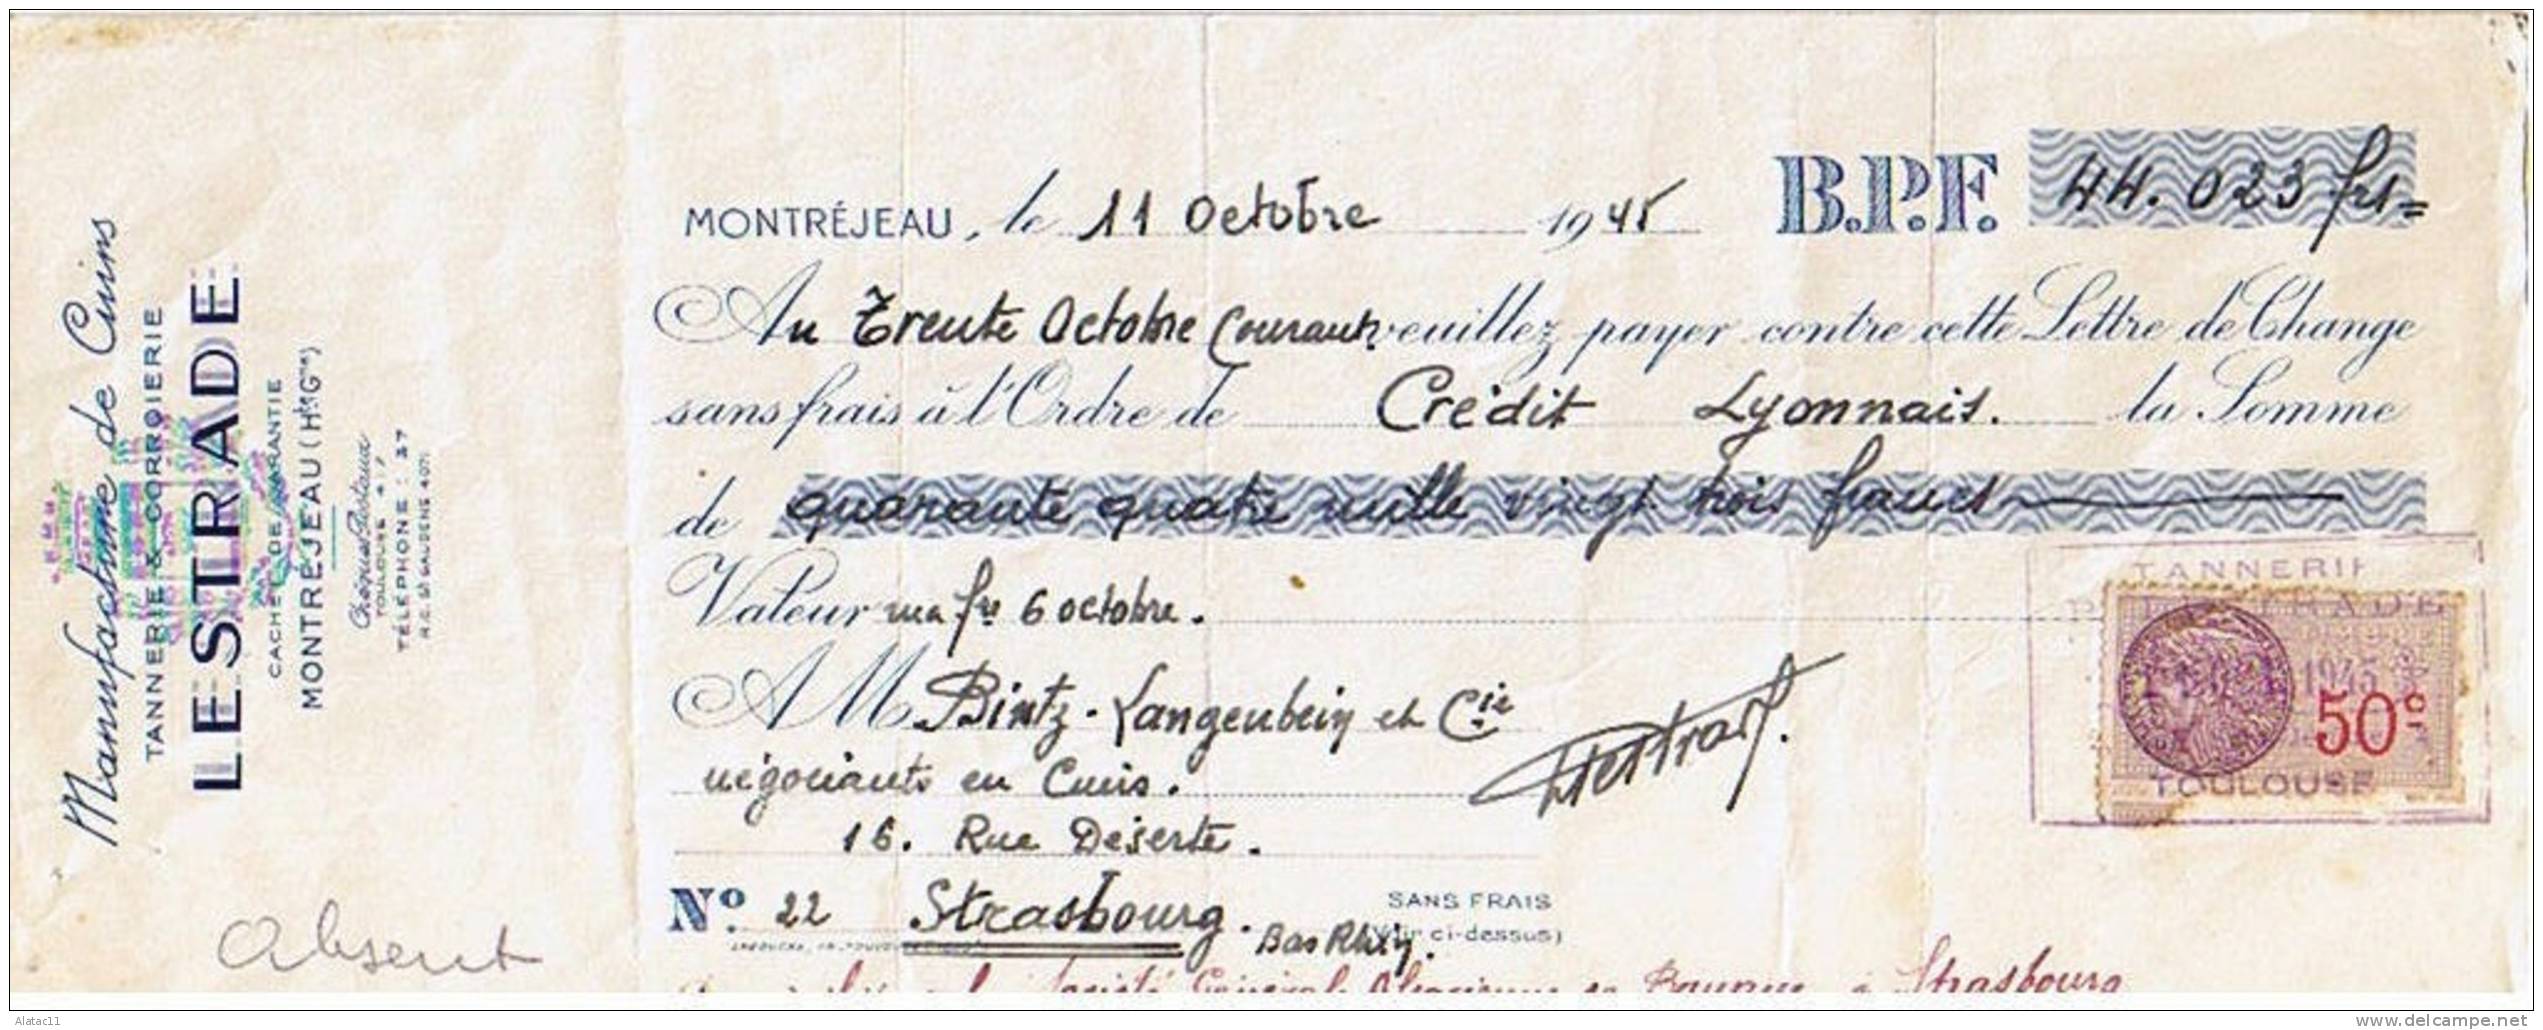 Manufacture de Cuirs
TANNERIE & CORROIERIE
LESTRADE
CACHET DE GARANTIE
MONTRÉJEAU (Hte Gne)
Chèques Postaux
TOULOUSE
TÉLÉPHONE : 37
R.C. St GAUDENS 4071
Absent
MONTRÉJEAU, le 11 Octobre 1945 B.P.F. 44.023 frs=
Au Trente Octobre Courant veuillez payer contre cette Lettre de Change
sans frais à l'Ordre de Crédit Lyonnais. la Somme
de quarante quatre mille vingt trois francs
Valeur ma fre 6 octobre.
A M Bintz-Langenbein et Cie
négociants en Cuirs.
16. Rue Déserte.
No. 22 Strasbourg. Bas Rhin.
SANS FRAIS
(Voir ci-dessus)
TANNERIE
LESTRADE
1945
50c
TOULOUSE
Société Générale Alsacienne de Banque à Strasbourg
Alatac11
delcampe.net